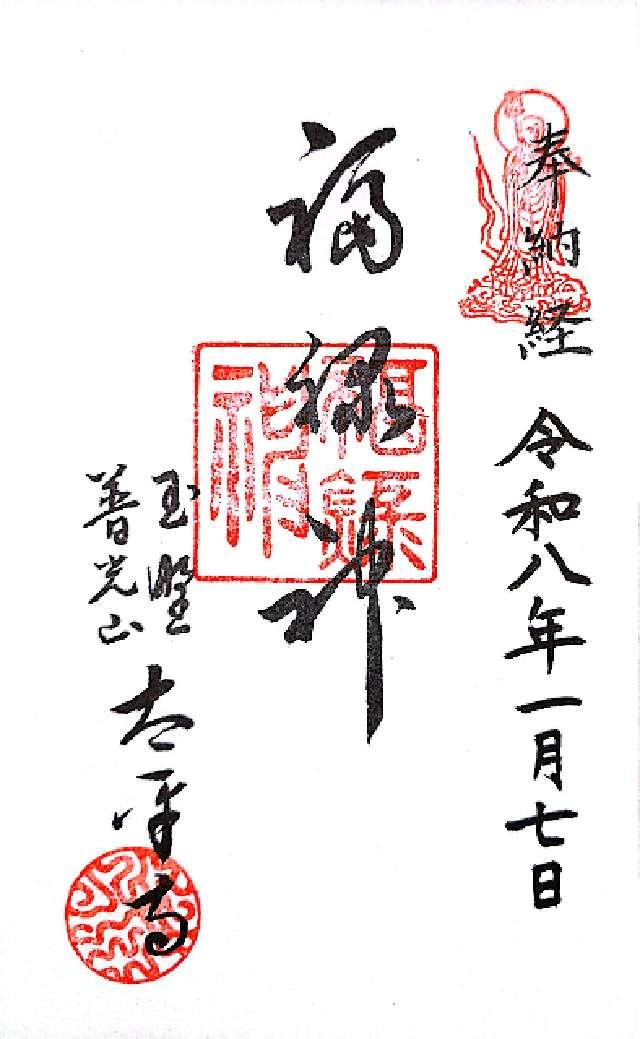 奉納経 令和八年一月七日
福禄神
福禄神
玉野
普光山
太平寺